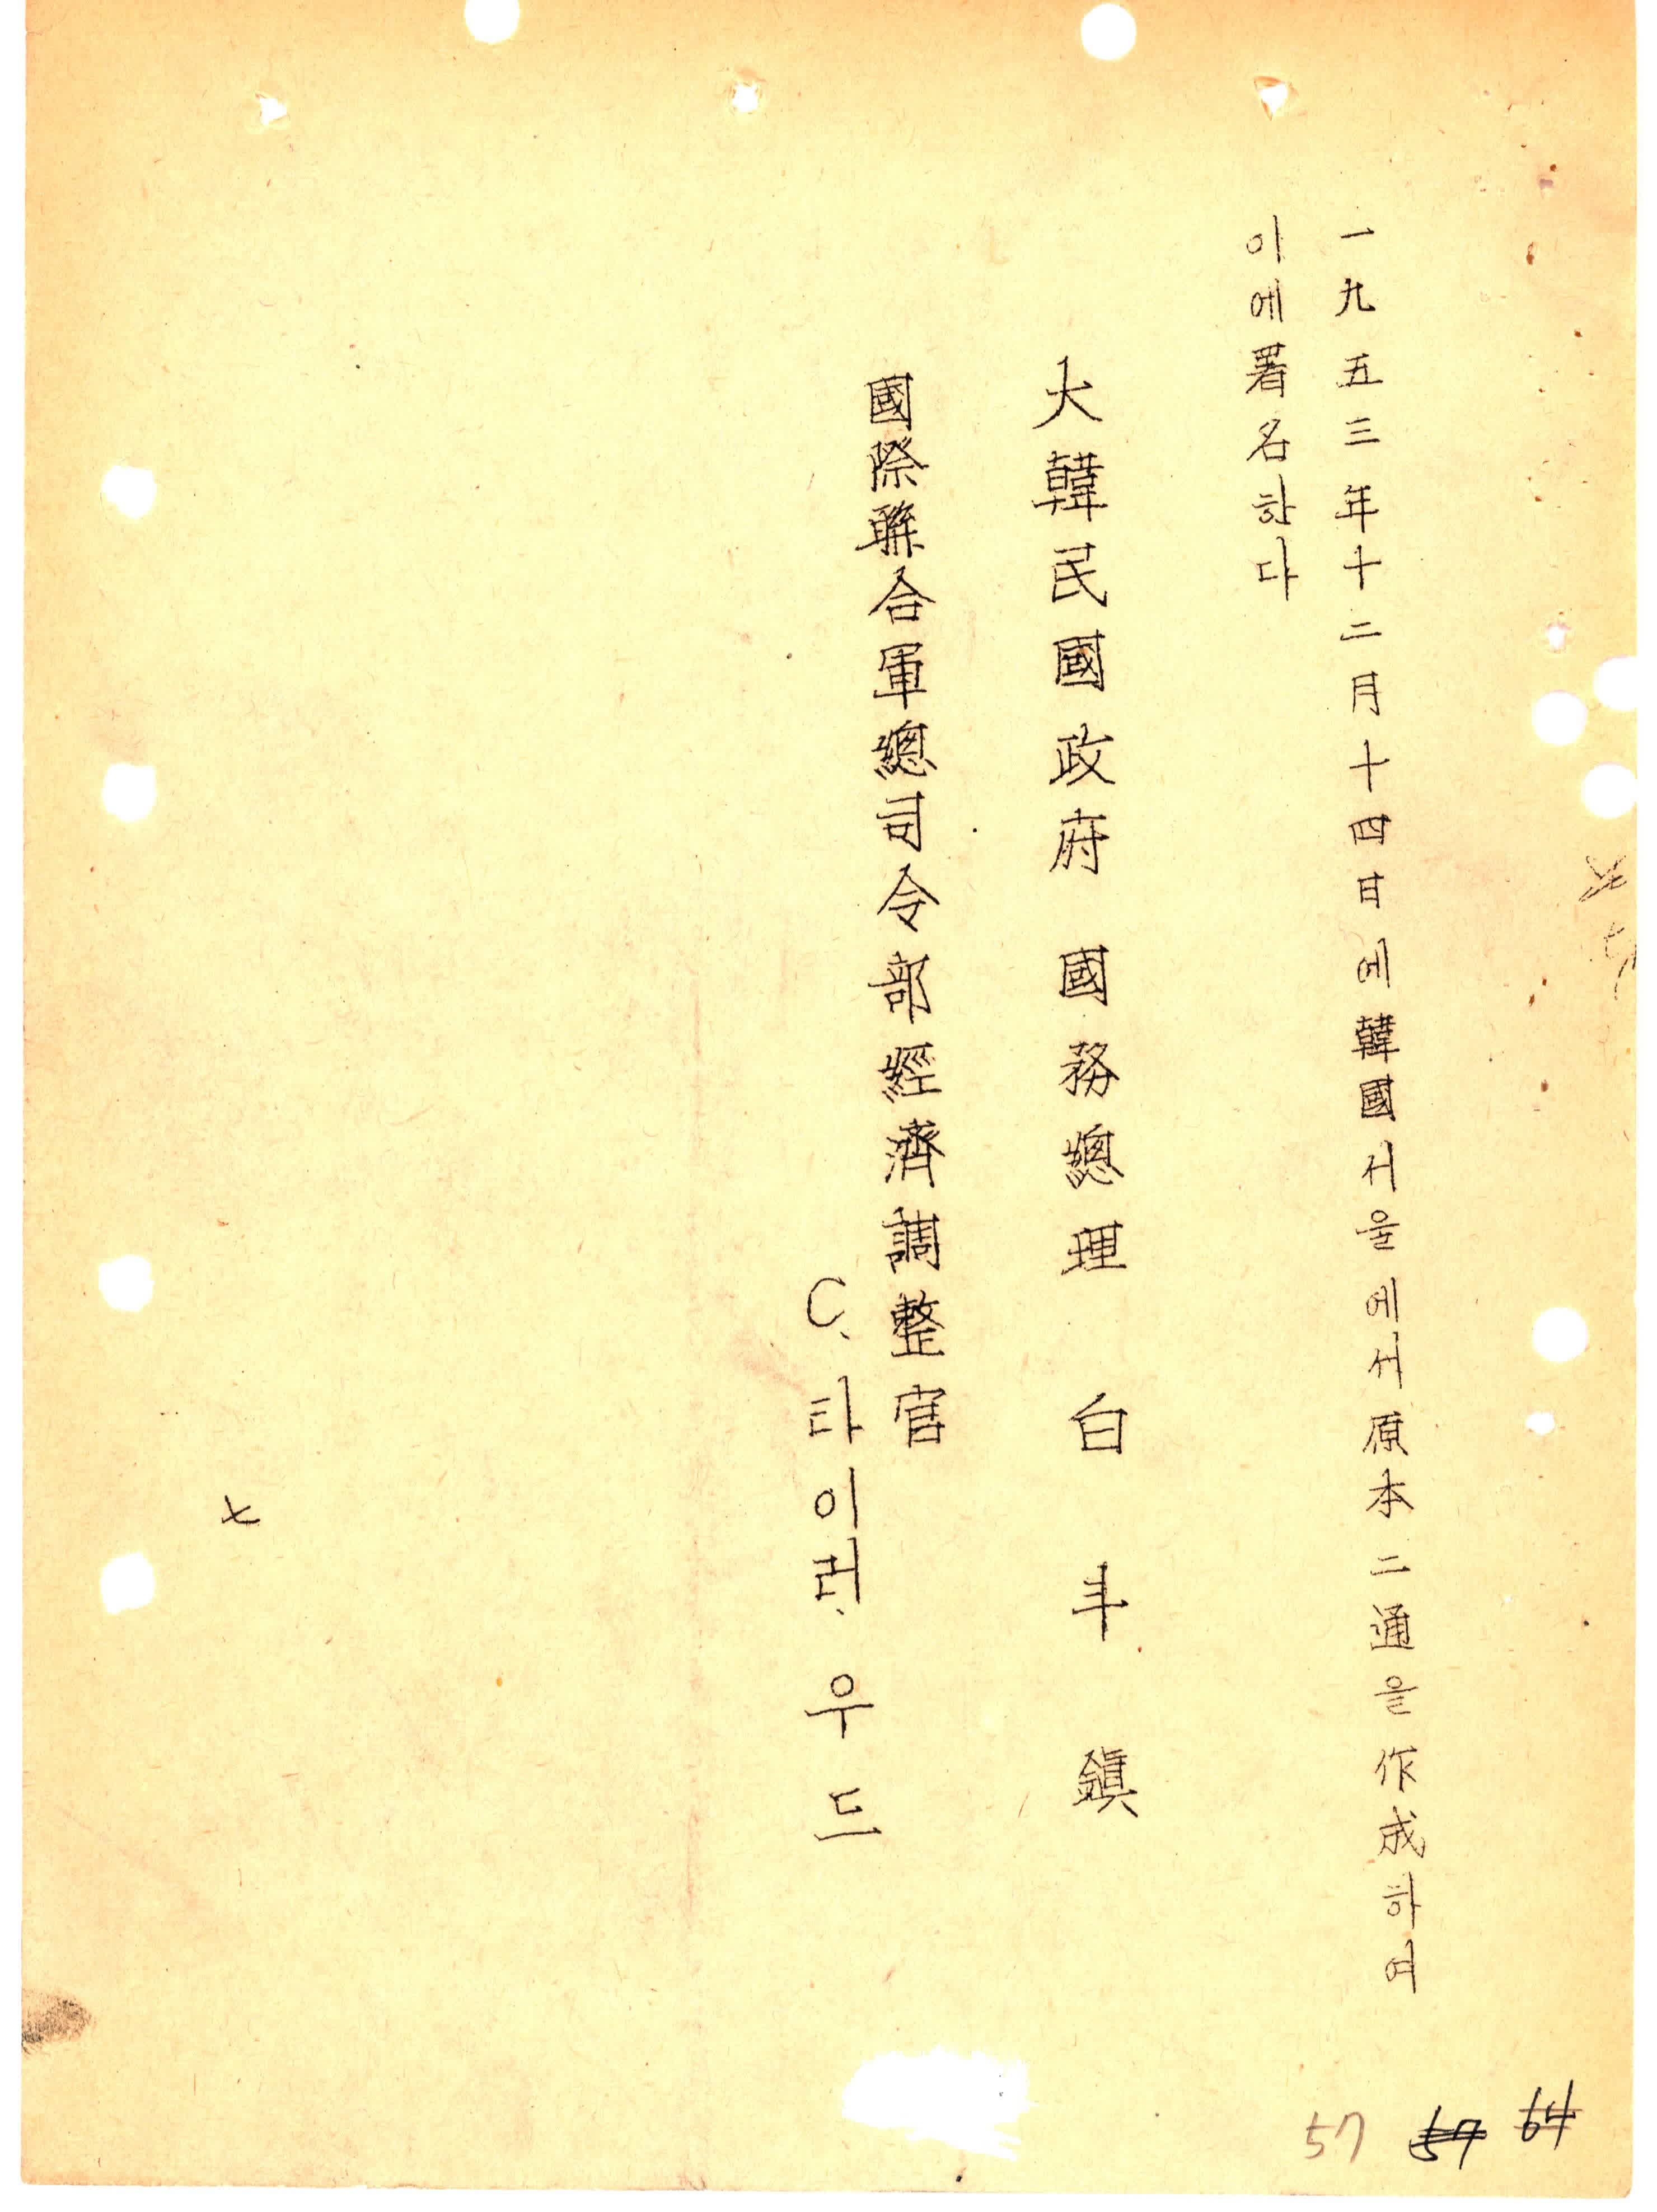 一九五三年十二月十四日에韓國서울에서原本二通을作成하여
이에署名하다
大韓民國政府 國務總理 白斗鎭
國際聯合軍總司令部經濟調整官
C. 타이러. 우드
七
57 57 64